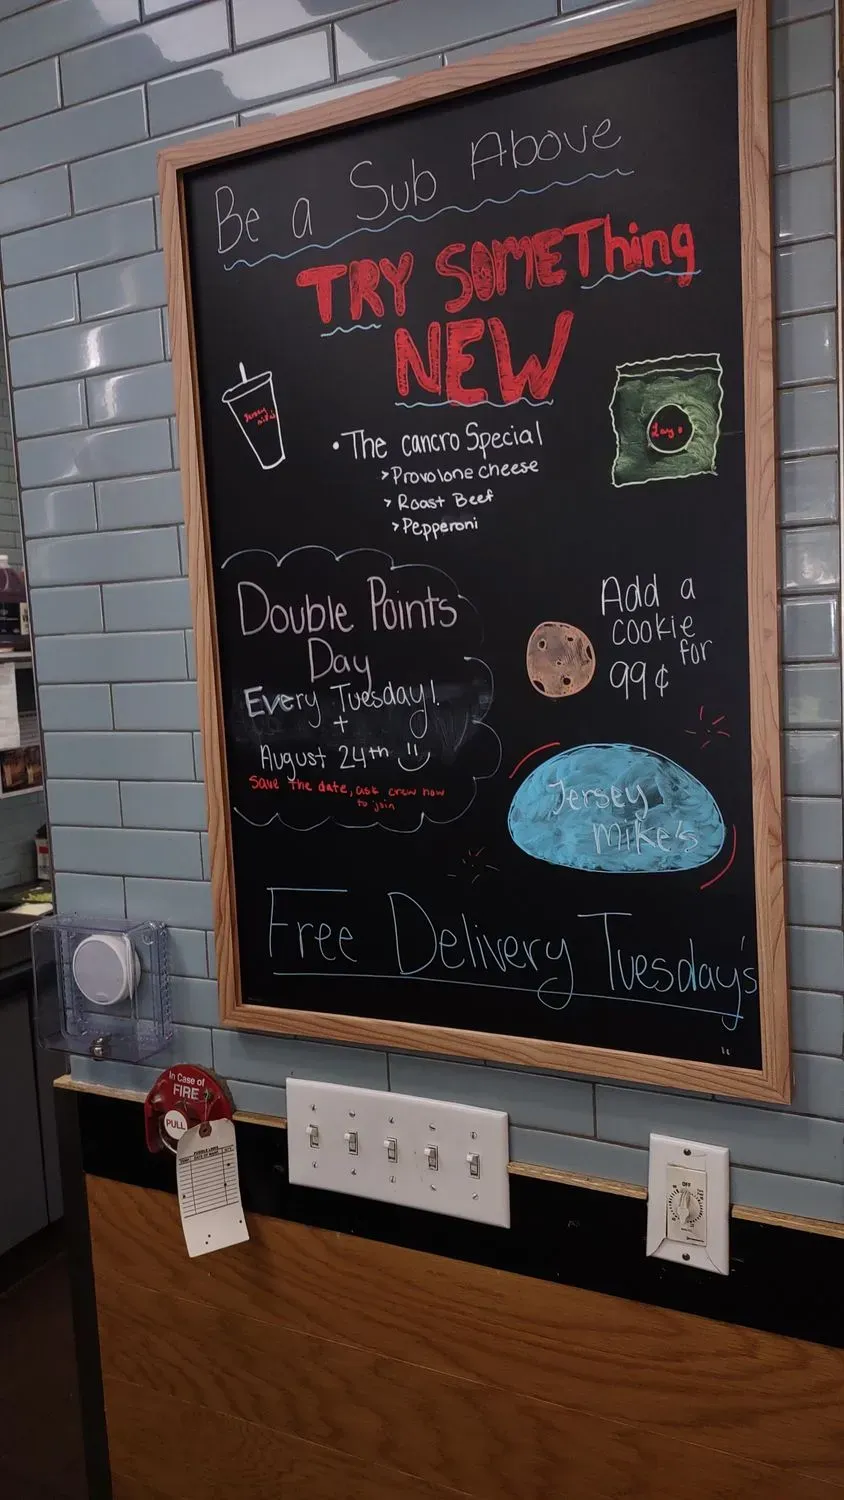 Be a Sub Above
TRY SOMEThing
NEW
Jersey
mike's
Lay's
• The cancro Special
> Provolone cheese
> Roast Beef
> Pepperoni
Double Points
Day
Every Tuesday!
+
August 24th
Save the date, ask crew how
to join
Add a
cookie
for
99¢
Jersey
mike's
Free Delivery Tuesday's
In Case of
FIRE
PULL
OFF